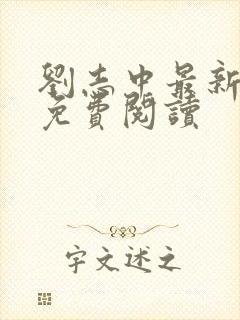 劉志中最新
免費閱讀
字文述之